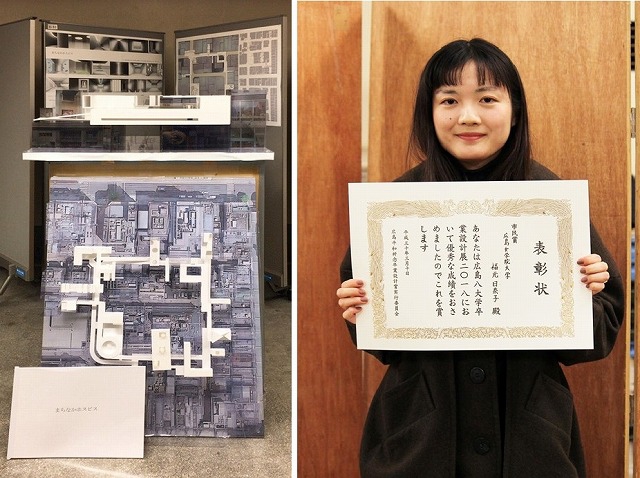 まちなかホスピス
表彰状
市民賞
広島女学院大学
福元 日奈子 殿
あなたは広島八大学卒
業設計展二〇一八にお
いて優秀な成績をおさ
めましたのでこれを賞
します
平成三十年三月十日
広島平和祈念卒業設計賞実行委員会